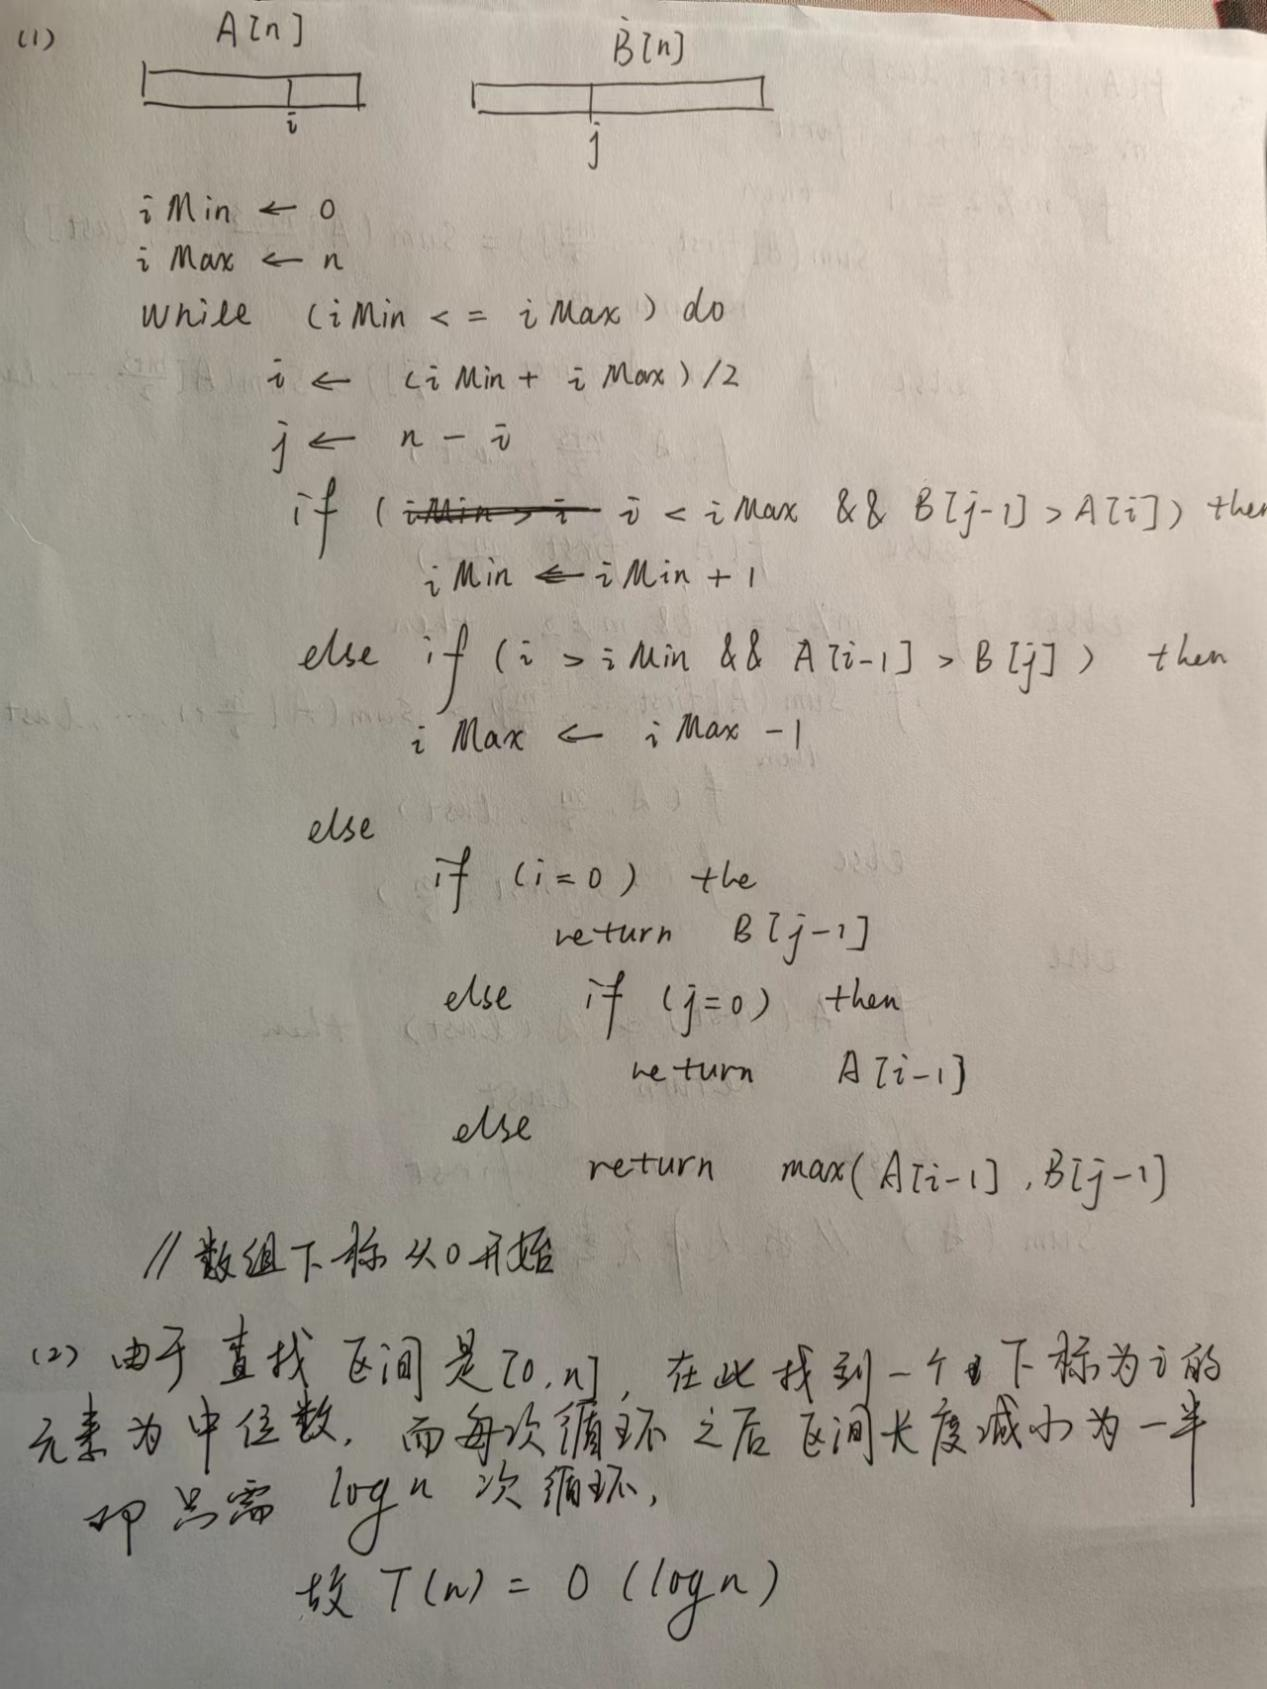 (1)
A[n]
B[n]
i
j
iMin ← 0
iMax ← n
while (iMin <= iMax) do
i ← (iMin + iMax)/2
j ← n - i
if (iMin > i i < iMax && B[j-1] > A[i]) then
iMin ← iMin + 1
else if (i > iMin && A[i-1] > B[j]) then
iMax ← iMax - 1
else
if (i=0) the
return B[j-1]
else if (j=0) then
return A[i-1]
else
return max(A[i-1], B[j-1]
// 数组下标从0开始
(2) 由于查找区间是[0,n],在此找到一个下标为i的
元素为中位数,而每次循环之后区间长度减小为一半
即只需 logn 次循环,
故 T(n) = O(logn)